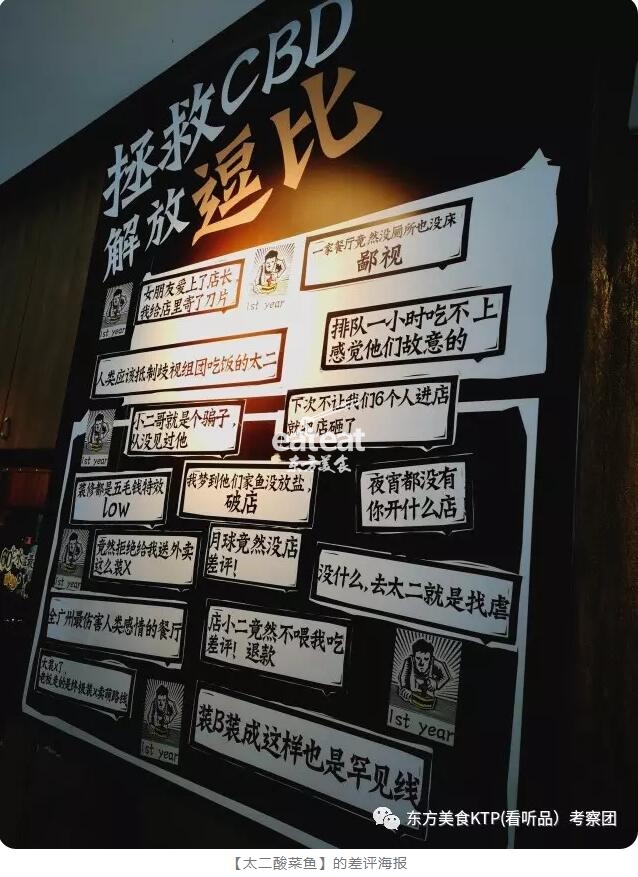 拯救CBD
解放逗比
一家餐厅竟然没厕所也没床
鄙视
女朋友爱上了店长,
我给店里寄了刀片
1st year
1st year
排队一小时吃不上
感觉他们故意的
人类应该抵制歧视组团吃饭的太二
下次不让我们6个人进店
就把店砸了
小二哥就是个骗子,
从没见过他
1st year
eateat
东方美食
装修都是五毛钱特效
low
我梦到他们家鱼没放盐,
破店
夜宵都没有
你开什么店
竟然拒绝给我送外卖
这么装X
月球竟然没店
差评!
没什么,去太二就是找虐
1st year
全广州最伤害人类感情的餐厅
店小二竟然不喂我吃
差评!退款
太装X了,
老板走的是终极装X卖萌路线
1st year
1st year
装B装成这样也是罕见线
东方美食KTP(看听品)考察团
【太二酸菜鱼】的差评海报